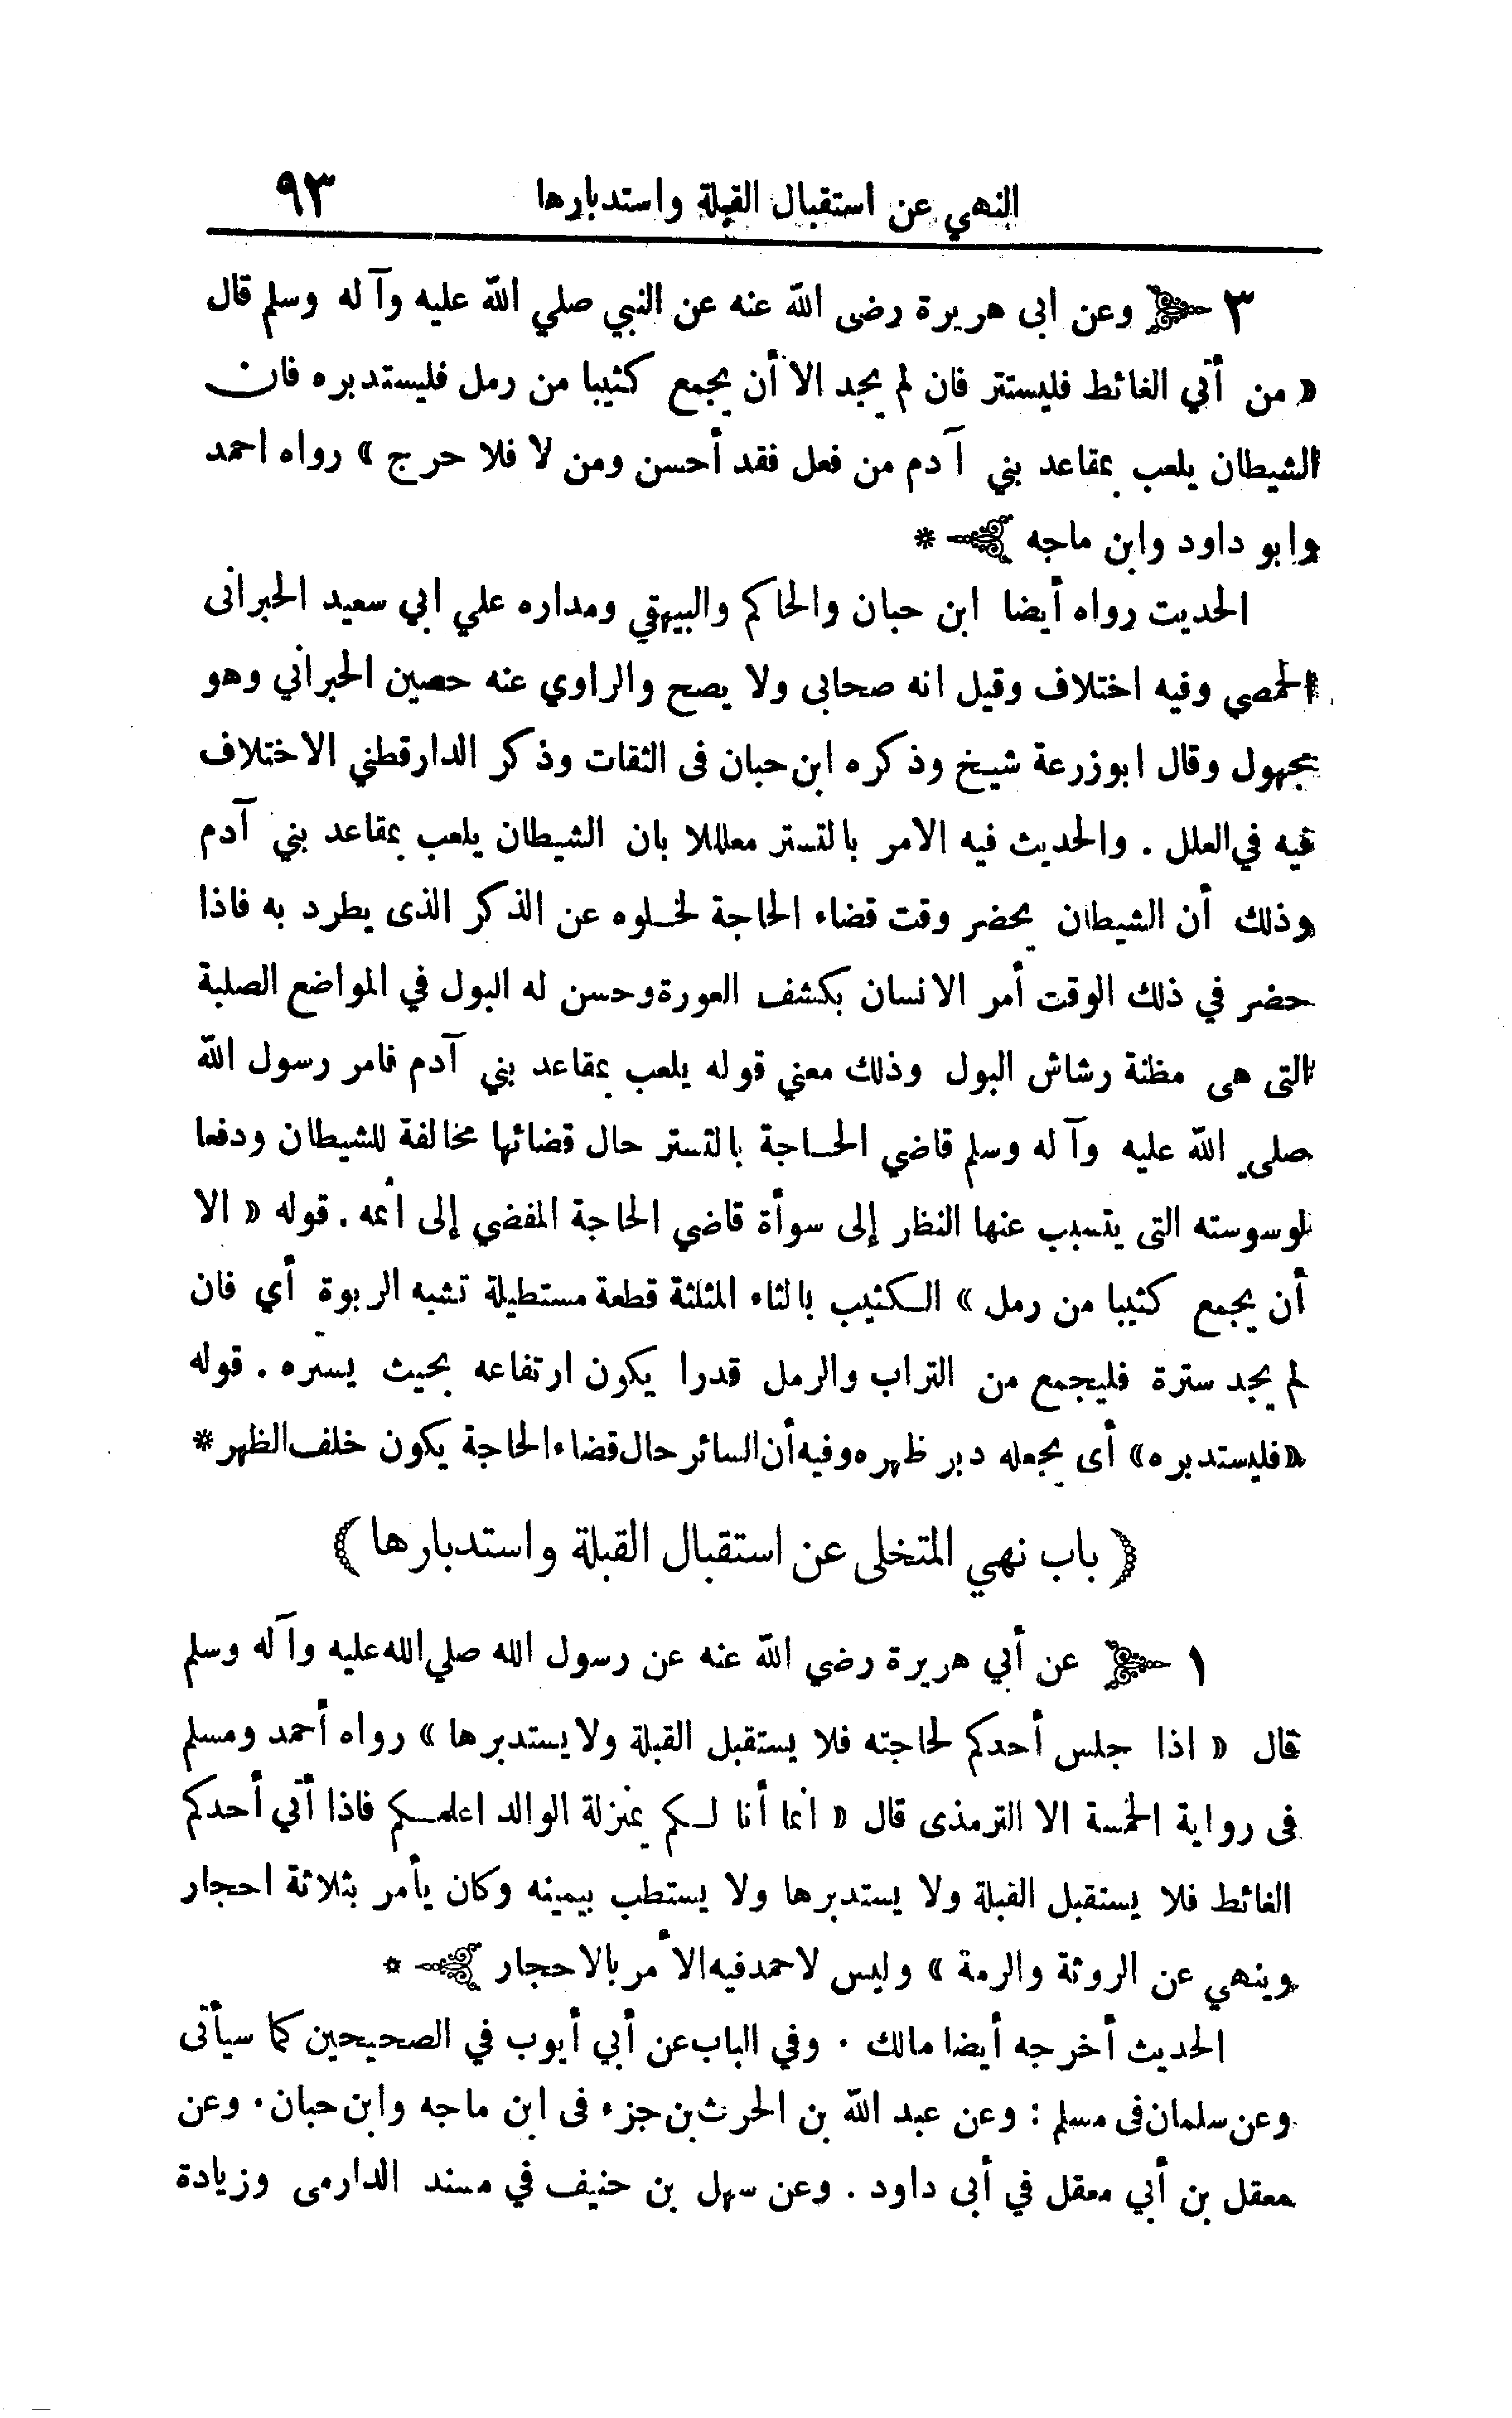 النهي عن استقبال القبلة واستدبارها ٩٣
٣ وعن ابى هريرة رضى الله عنه عن النبي صلي الله عليه وآله وسلم قال
« من أتي الغائط فليستتر فان لم يجد الا أن يجمع كثيبا من رمل فليستدبره فان
الشيطان يلعب بمقاعد بني آدم من فعل فقد أحسن ومن لا فلا حرج » رواه احمد
وابو داود وابن ماجه *
الحديث رواه أيضا ابن حبان والحاكم والبيهقي ومداره علي ابي سعيد الحبرانى
الحمصي وفيه اختلاف وقيل انه صحابى ولا يصح والراوي عنه حصين الحبراني وهو
مجهول وقال ابوزرعة شيخ وذكره ابن حبان فى الثقات وذكر الدارقطني الاختلاف
فيه في العلل . والحديث فيه الامر بالتستر معللا بان الشيطان يلعب بمقاعد بني آدم
وذلك أن الشيطان يحضر وقت قضاء الحاجة لخلوه عن الذكر الذى يطرد به فاذا
حضر في ذلك الوقت أمر الانسان بكشف العورة وحسن له البول في المواضع الصلبة
التى هى مظنة رشاش البول وذلك معني قوله يلعب بمقاعد بني آدم فامر رسول الله
صلى الله عليه وآله وسلم قاضي الحاجة بالتستر حال قضائها مخالفة للشيطان ودفعا
لوسوسته التى يتسبب عنها النظر إلى سوأة قاضي الحاجة المفضي إلى أثمه . قوله « الا
أن يجمع كثيبا من رمل » الكثيب بالثاء المثلثة قطعة مستطيلة تشبه الربوة أي فان
لم يجد سترة فليجمع من التراب والرمل قدرا يكون ارتفاعه بحيث يستره . قوله
« فليستدبره » أى يجعله دبر ظهره وفيه أن الساتر حال قضاء الحاجة يكون خلف الظهر *
( باب نهي المتخلى عن استقبال القبلة واستدبارها )
١ عن أبي هريرة رضي الله عنه عن رسول الله صلي الله عليه وآله وسلم
قال « اذا جلس أحدكم لحاجته فلا يستقبل القبلة ولا يستدبرها » رواه أحمد ومسلم
فى رواية الخمسة الا الترمذى قال « انما أنا لكم بمنزلة الوالد اعلمكم فاذا أتي أحدكم
الغائط فلا يستقبل القبلة ولا يستدبرها ولا يستطب بيمينه وكان يأمر بثلاثة احجار
وينهي عن الروثة والرمة » وليس لاحمد فيه الأمر بالاحجار *
الحديث أخرجه أيضا مالك . وفي الباب عن أبي أيوب في الصحيحين كما سيأتى
وعن سلمان فى مسلم : وعن عبد الله بن الحرث بن جزء فى ابن ماجه وابن حبان . وعن
معقل بن أبي معقل في أبى داود . وعن سهل بن حنيف في مسند الدارمى وزيادة